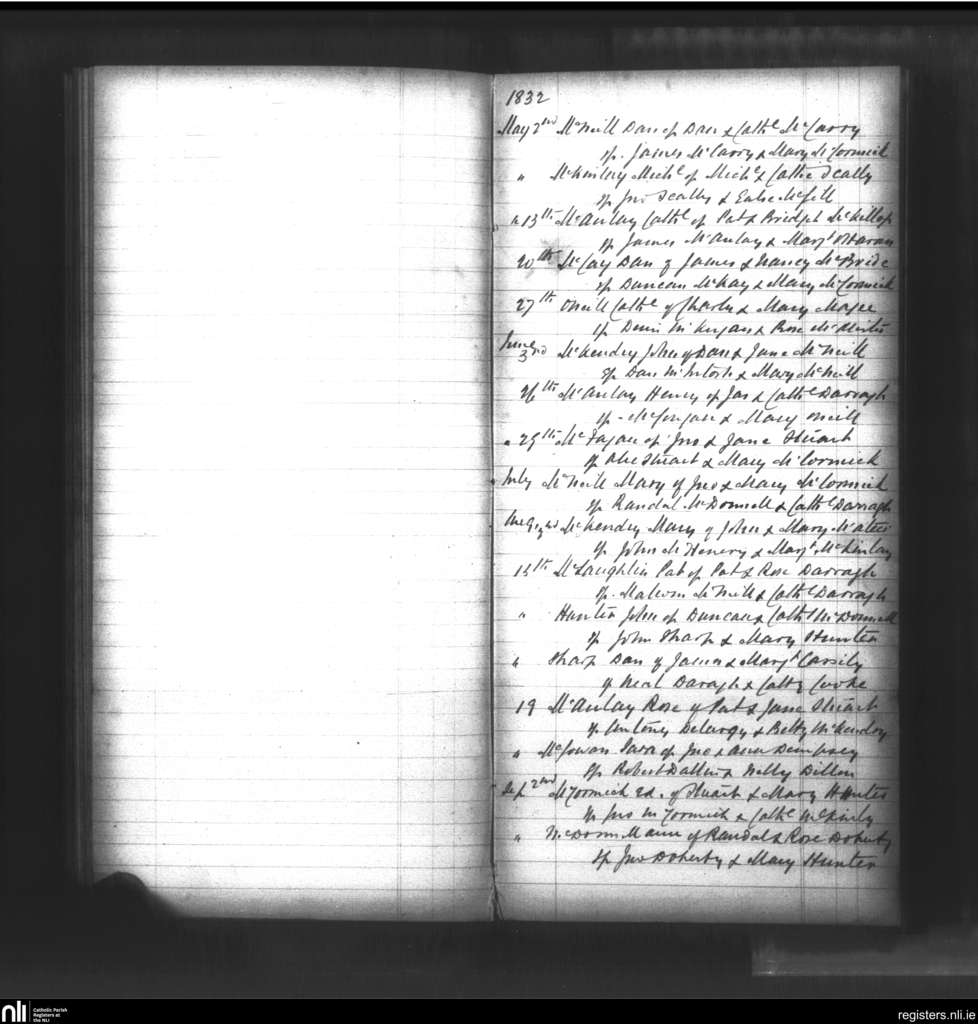 1832
May 2nd McNeill Dan of Dan & Cathe McCarry
sp. James McCarry & Mary McCormick
" McKinley Michl of Michl & Cathe Scally
sp Jno Scally & McGill
" 13th McAulay Cathe of Pat & Bridget McKillop
sp James McAulay & Margt O'Haran
20th McCay Dan of James & Nancy McBride
sp Duncan McKay & Mary McCormick
27th ONeill Cathe of Charles & Mary Magee
sp Denis & Rose
June 3rd McKendry John of Dan & Jane McNeill
sp Dan McIntosh & Mary McNeill
26th McAulay Henry of Jas & Cathe Darragh
sp - & Mary ONeill
" 29th McFagan of Jno & Jane Stuart
sp Alex Stuart & Mary McCormick
July McNeill Mary of Jno & Mary McCormick
sp Randal McDonnell & Cathe Darragh
Aug 2nd McKendry Mary of John & Mary
sp John McHenery & Margt McKinlay
15th McLaughlin Pat of Pat & Rose Darragh
sp. Malcom McNeill & Cathe Darragh
" Hunter John of Duncan & Cathe McDonnell
sp John Sharp & Mary Hunter
" Sharp Dan of James & Margt Cassily
sp Neal Daragh & Cathe Cooke
19 McAulay Rose of Pat & Jane Stuart
sp Antony Delargy & Betty McKendry
" McGowan Sara of Jno & Ann Dempsey
sp Robert Dallin & Nelly Dillon
Sep 2nd McCormick Ed. of Stuart & Mary Hunter
sp Jno McCormick & Cathe McKinly
" McDonn of Randal & Rose Doherty
sp Jno Doherty & Mary Hunter
nli
Catholic Parish
Registers at
the NLI
registers.nli.ie